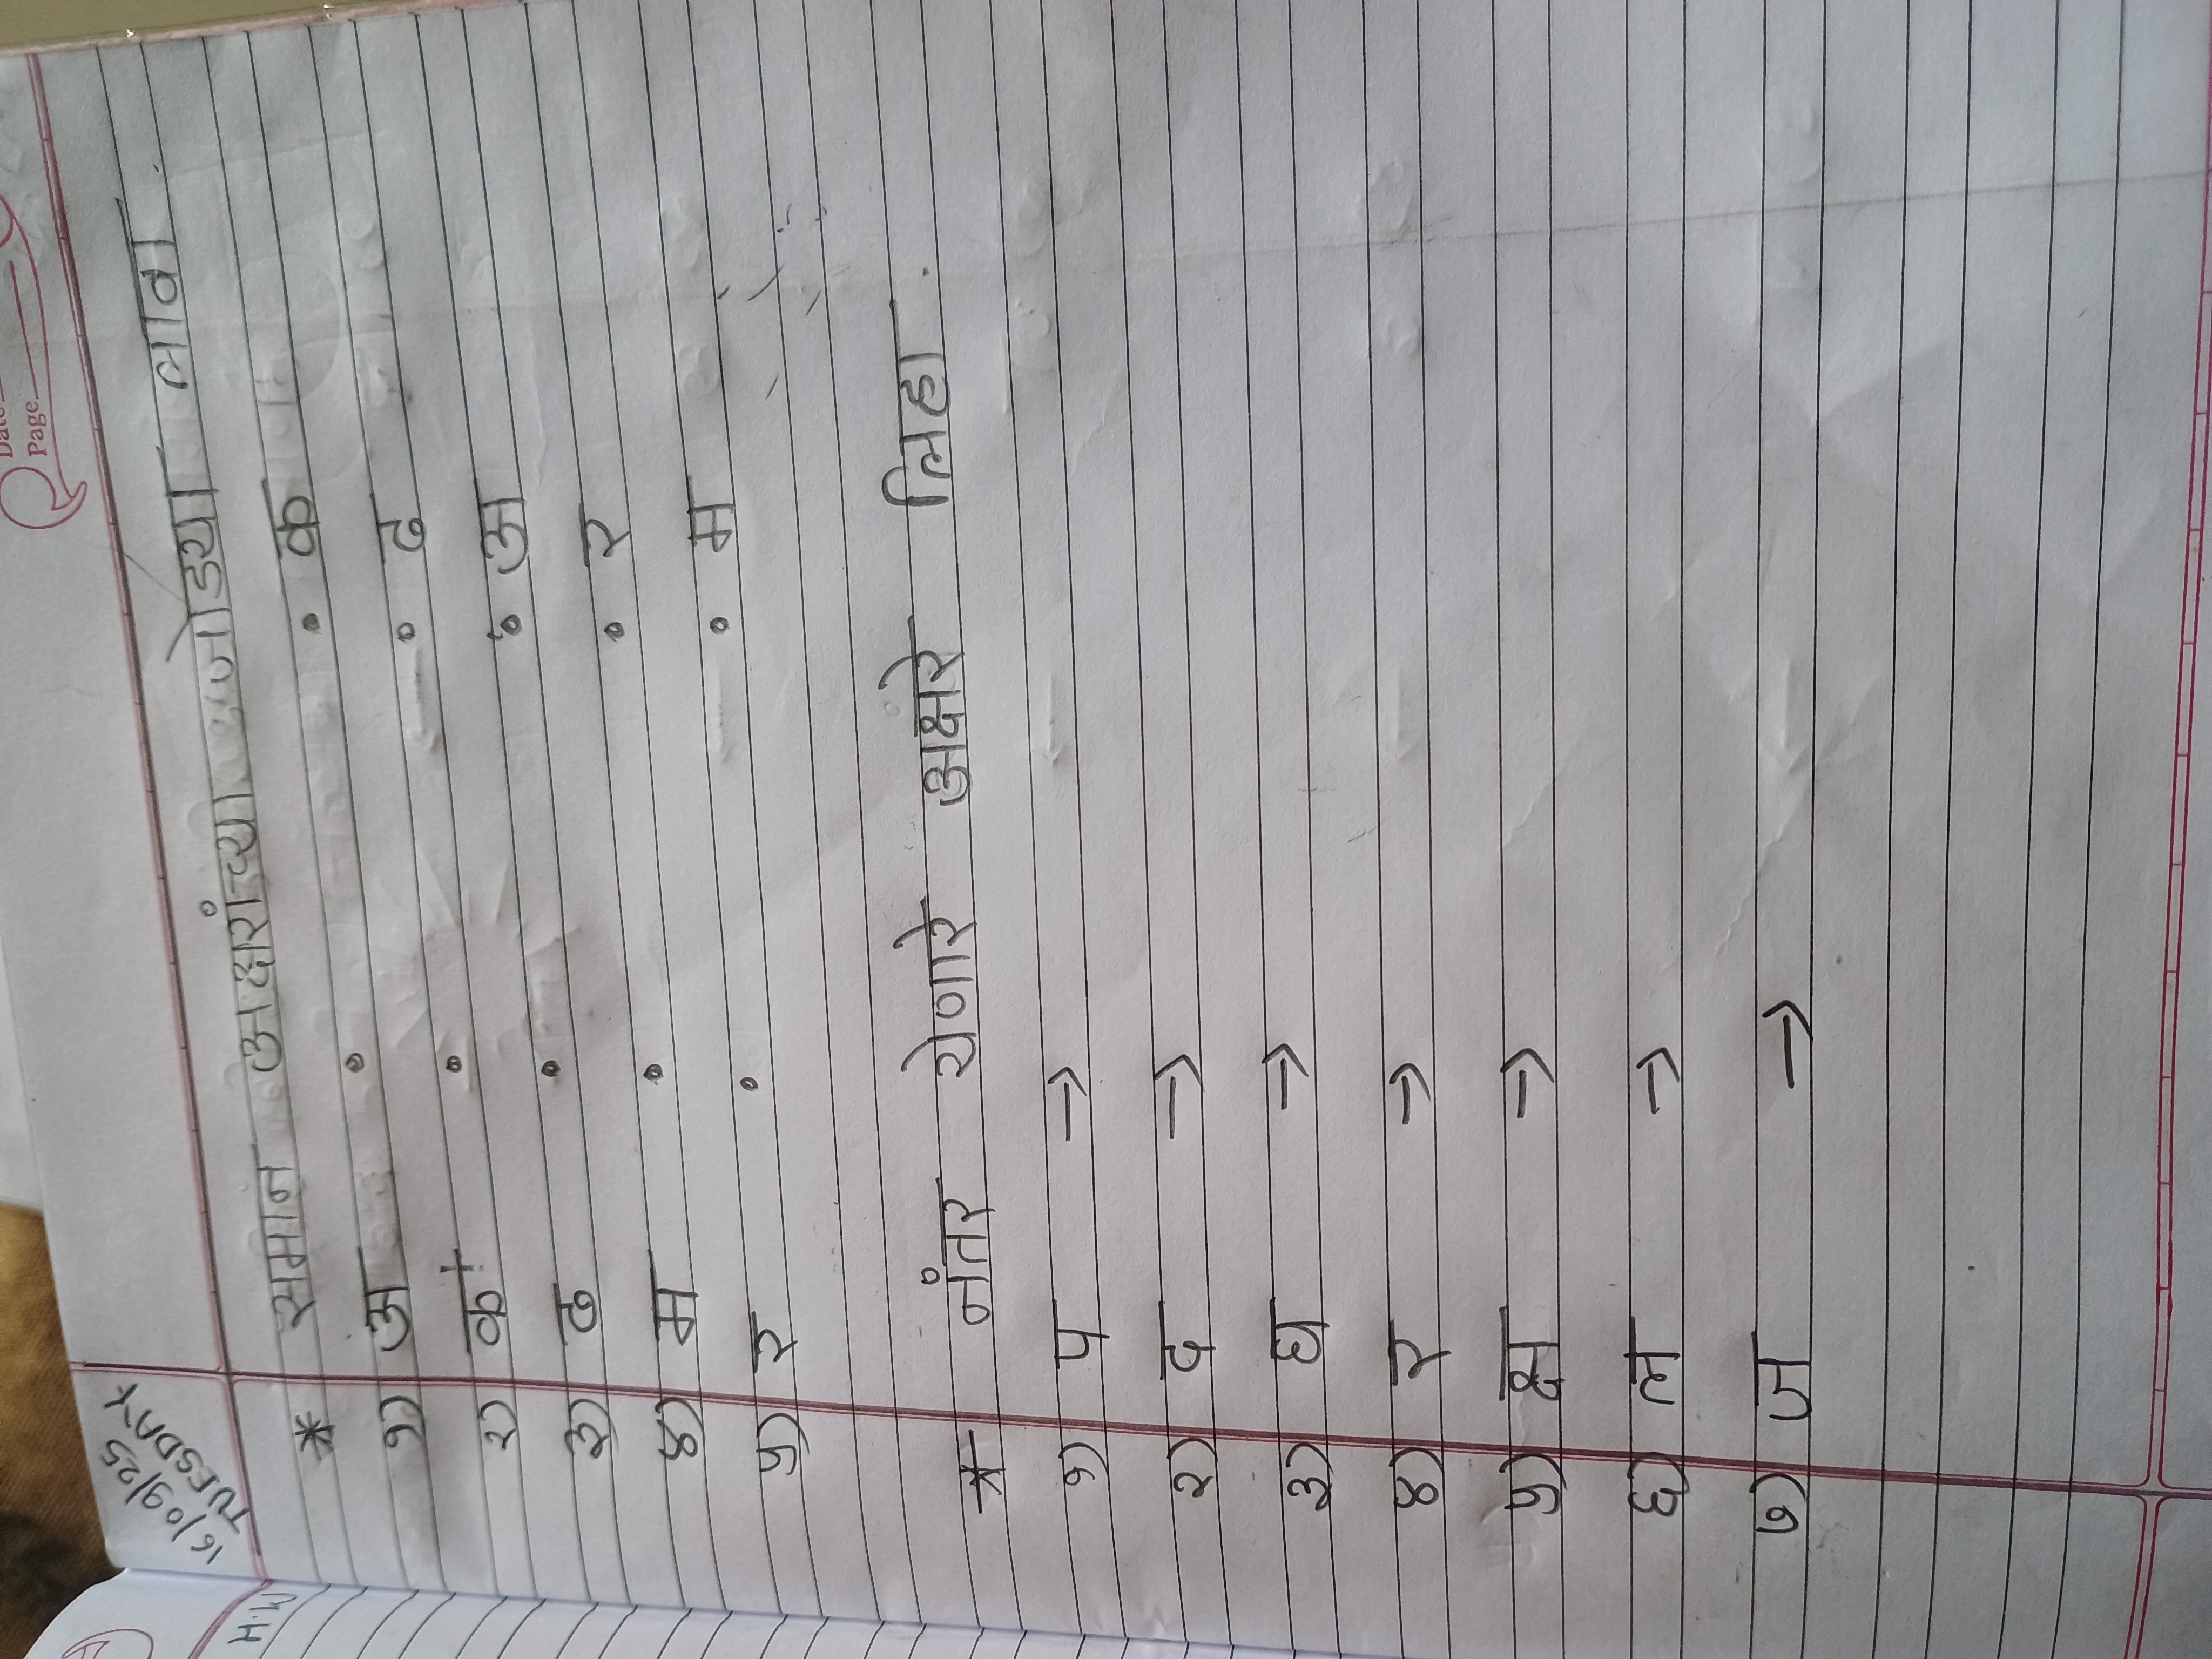 Date
Page
16/09/25
TUESDAY
H.W
* समान अक्षरांच्या जोड्या लावा.
१) अ • • क
२) क • • ढ
३) ढ • • अ
४) म • • र
५) र • • म
* नंतर येणारे अक्षरे लिहा.
१) प →
२) द →
३) घ →
४) र →
५) क्ष →
६) ल →
७) ज →